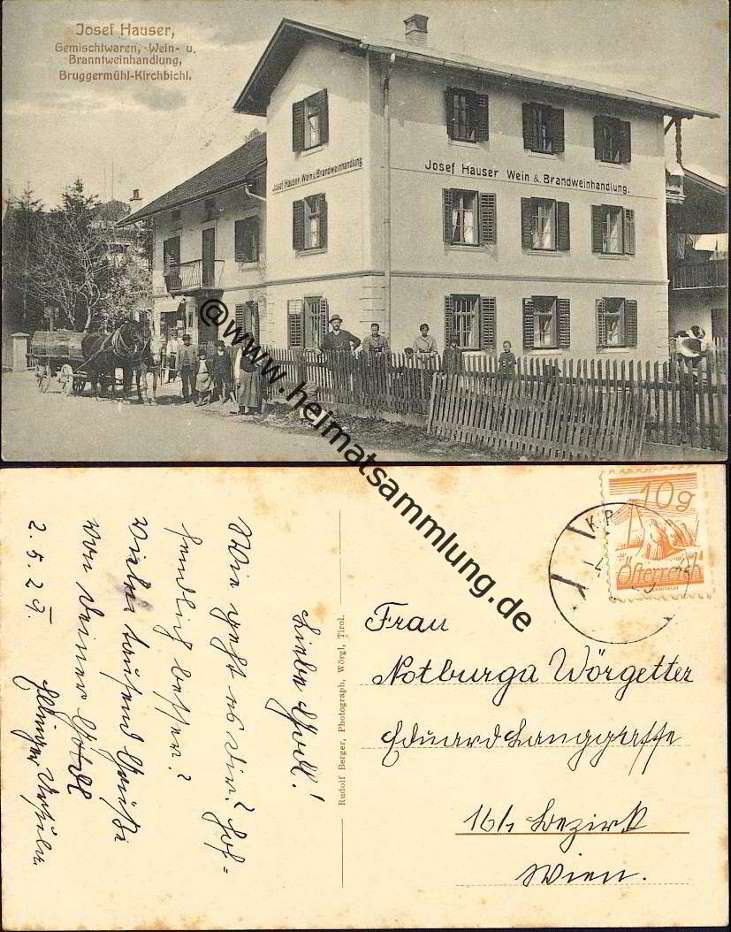 Josef Hauser,
Gemischtwaren, -Wein- u.
Branntweinhandlung,
Bruggermühl-Kirchbichl.
Josef Hauser Wein & Brandweinhandlung
Josef Hauser Wein & Brandweinhandlung.
@www.heimatsammlung.de
Liebe Godl!
Wie geht es dir? Hof-
fendlich besser?
Vieles tausend Grüße
von deiner Godl
Ursula
2. 5. 29.
Rudolf Berger, Photograph, Wörgl, Tirol.
10g
Österreich
Frau
Notburga Wörgetter
Eduard Langgasse
16/1 Bezirk
Wien.